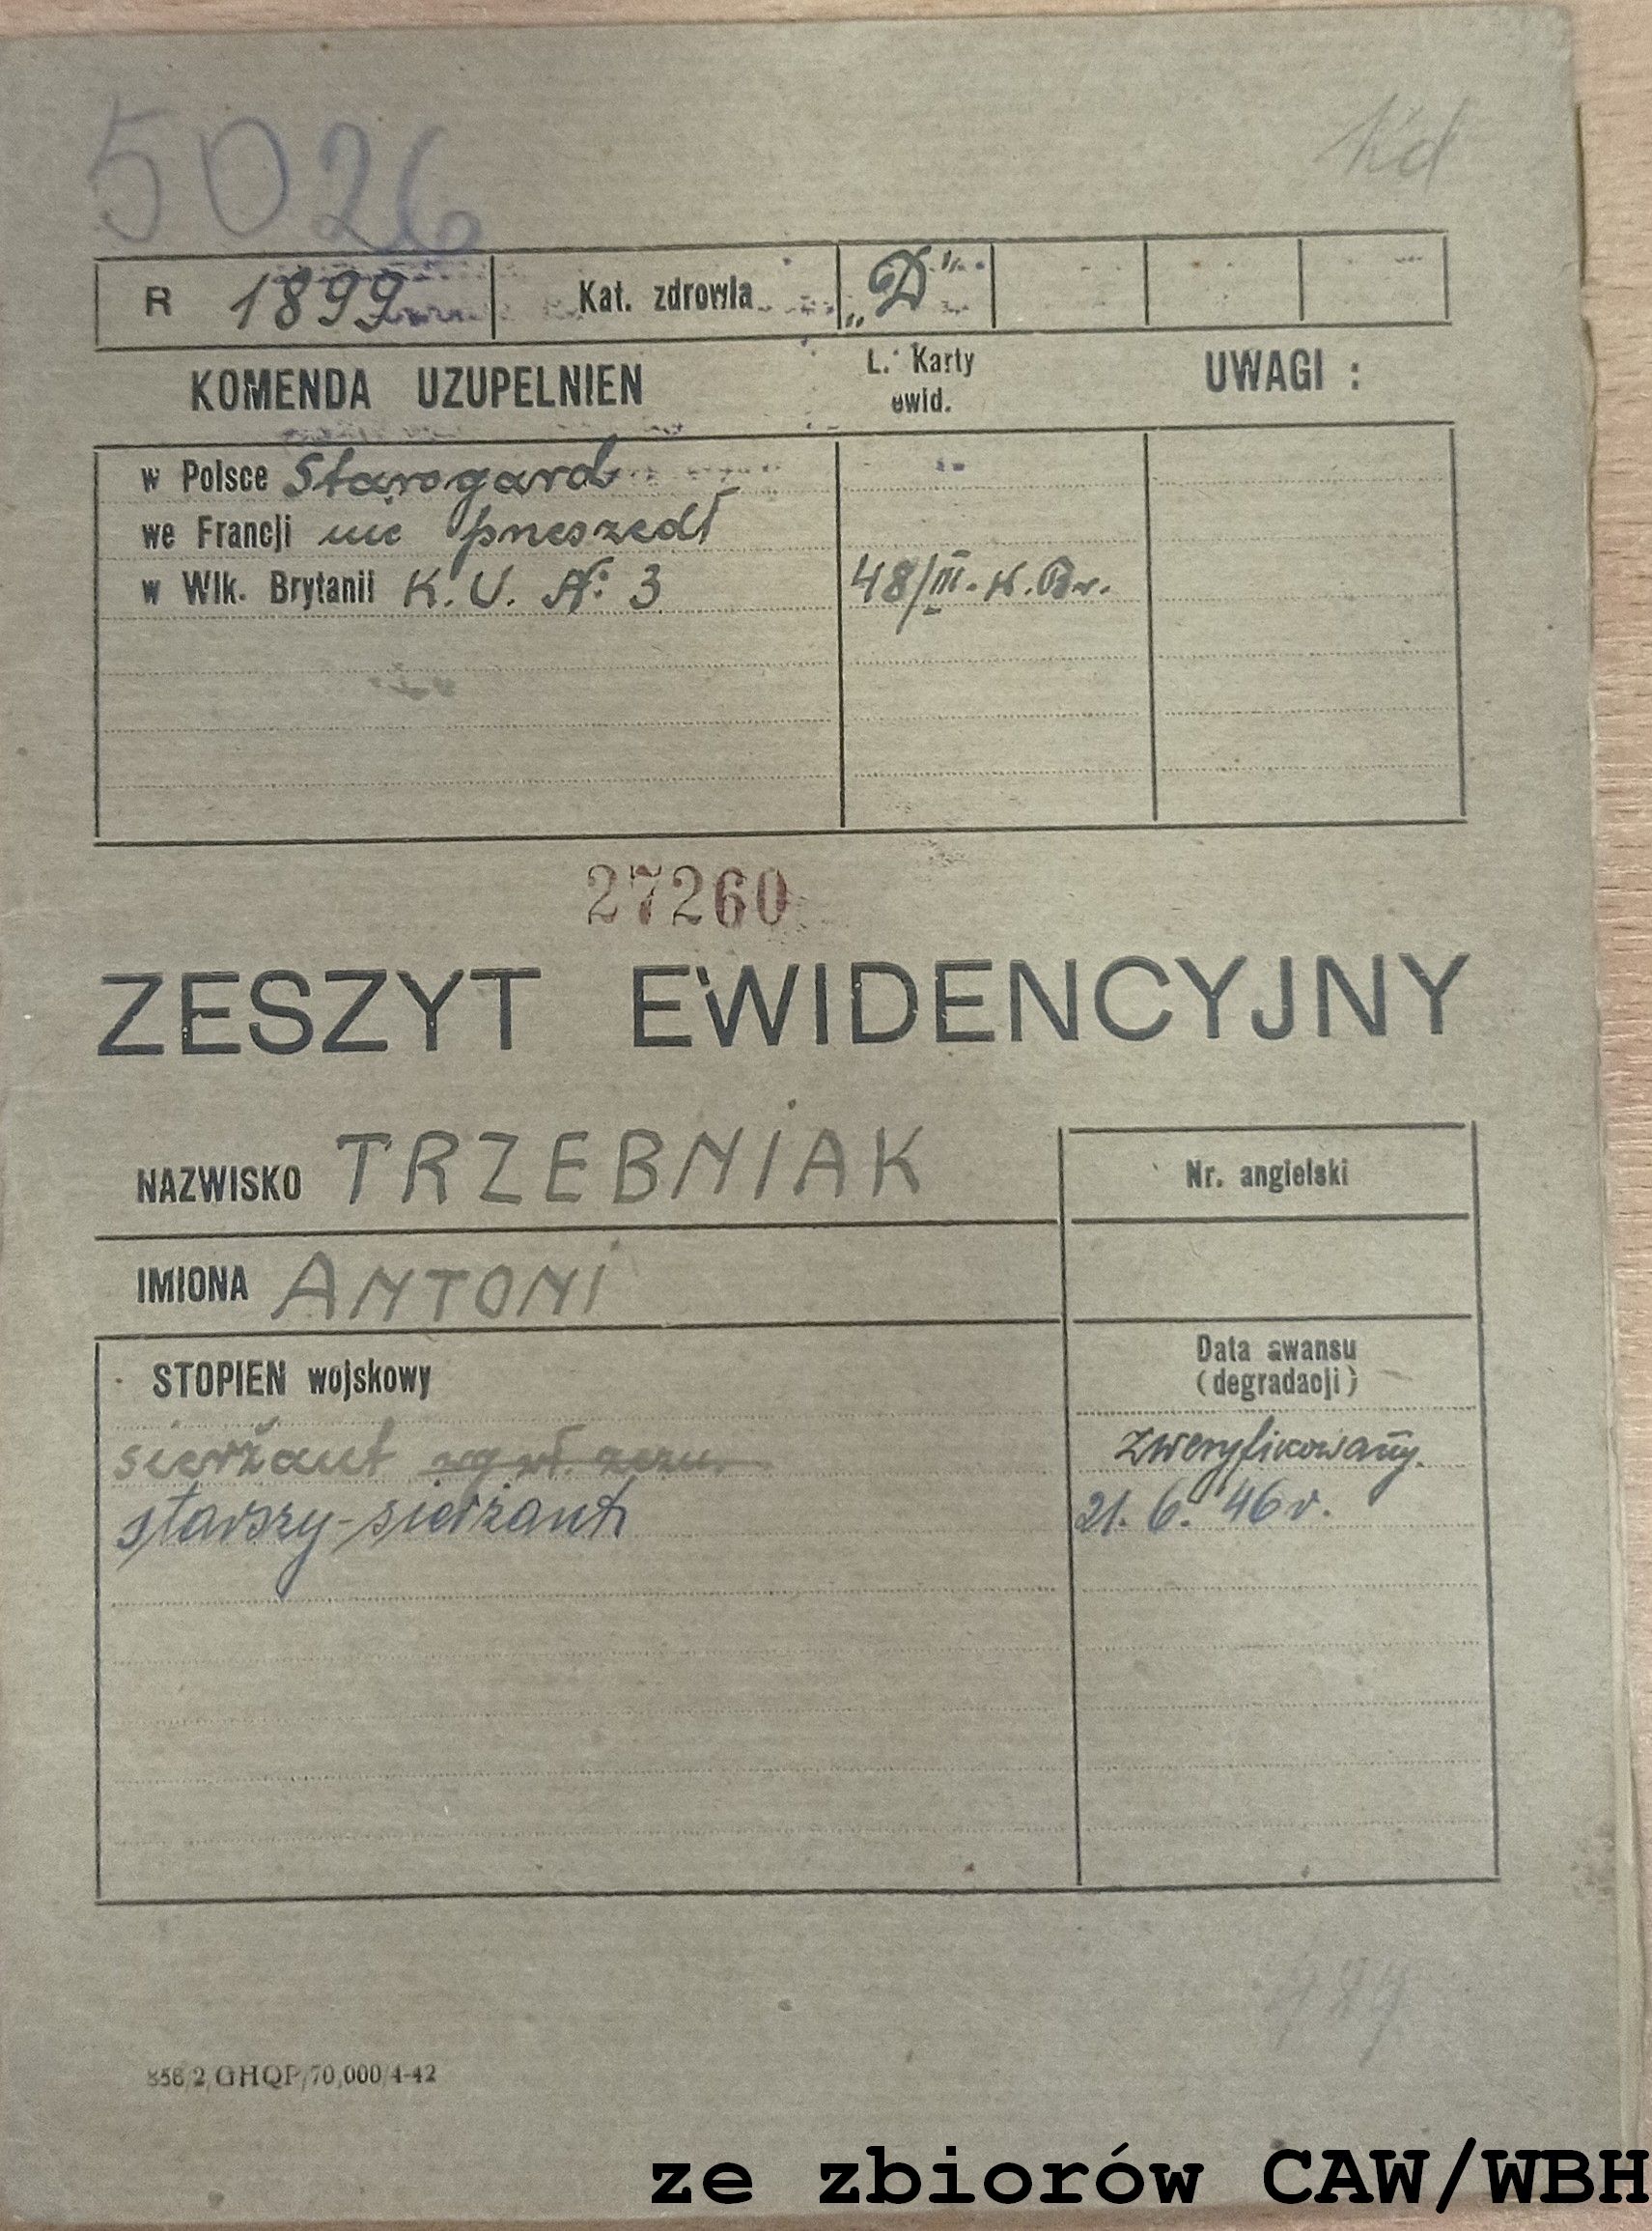 5026
R 1899 Kat. zdrowia „D"
KOMENDA UZUPELNIEN L. Karty ewid. UWAGI :
w Polsce Starogard
we Francji nie przeszedł
w Wlk. Brytanii K. U. Nr 3 48/III. K. Br.
27260
ZESZYT EWIDENCYJNY
NAZWISKO TRZEBNIAK Nr. angielski
IMIONA ANTONI
STOPIEN wojskowy Data awansu
(degradacji)
sierżant wg wł. zezn. zweryfikowany.
starszy-sierżant 21. 6. 46 r.
856/2/GHQP/70,000/4-42
ze zbiorów CAW/WBH